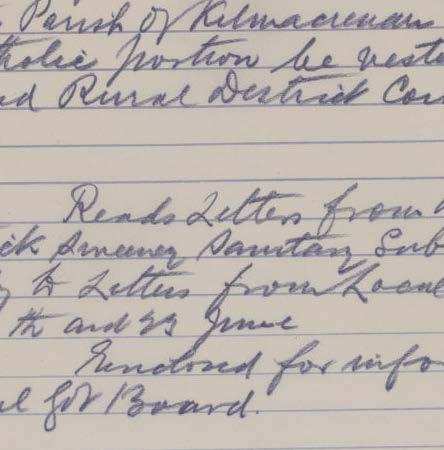 Parish of Kilmacrenan
tholic portion be veste
ed Rural District Cou
Reads Letters from
ick Sweeney Sanitary Sub
to Letters from Local
th and 23 June
Enclosed for info
al Gov Board.